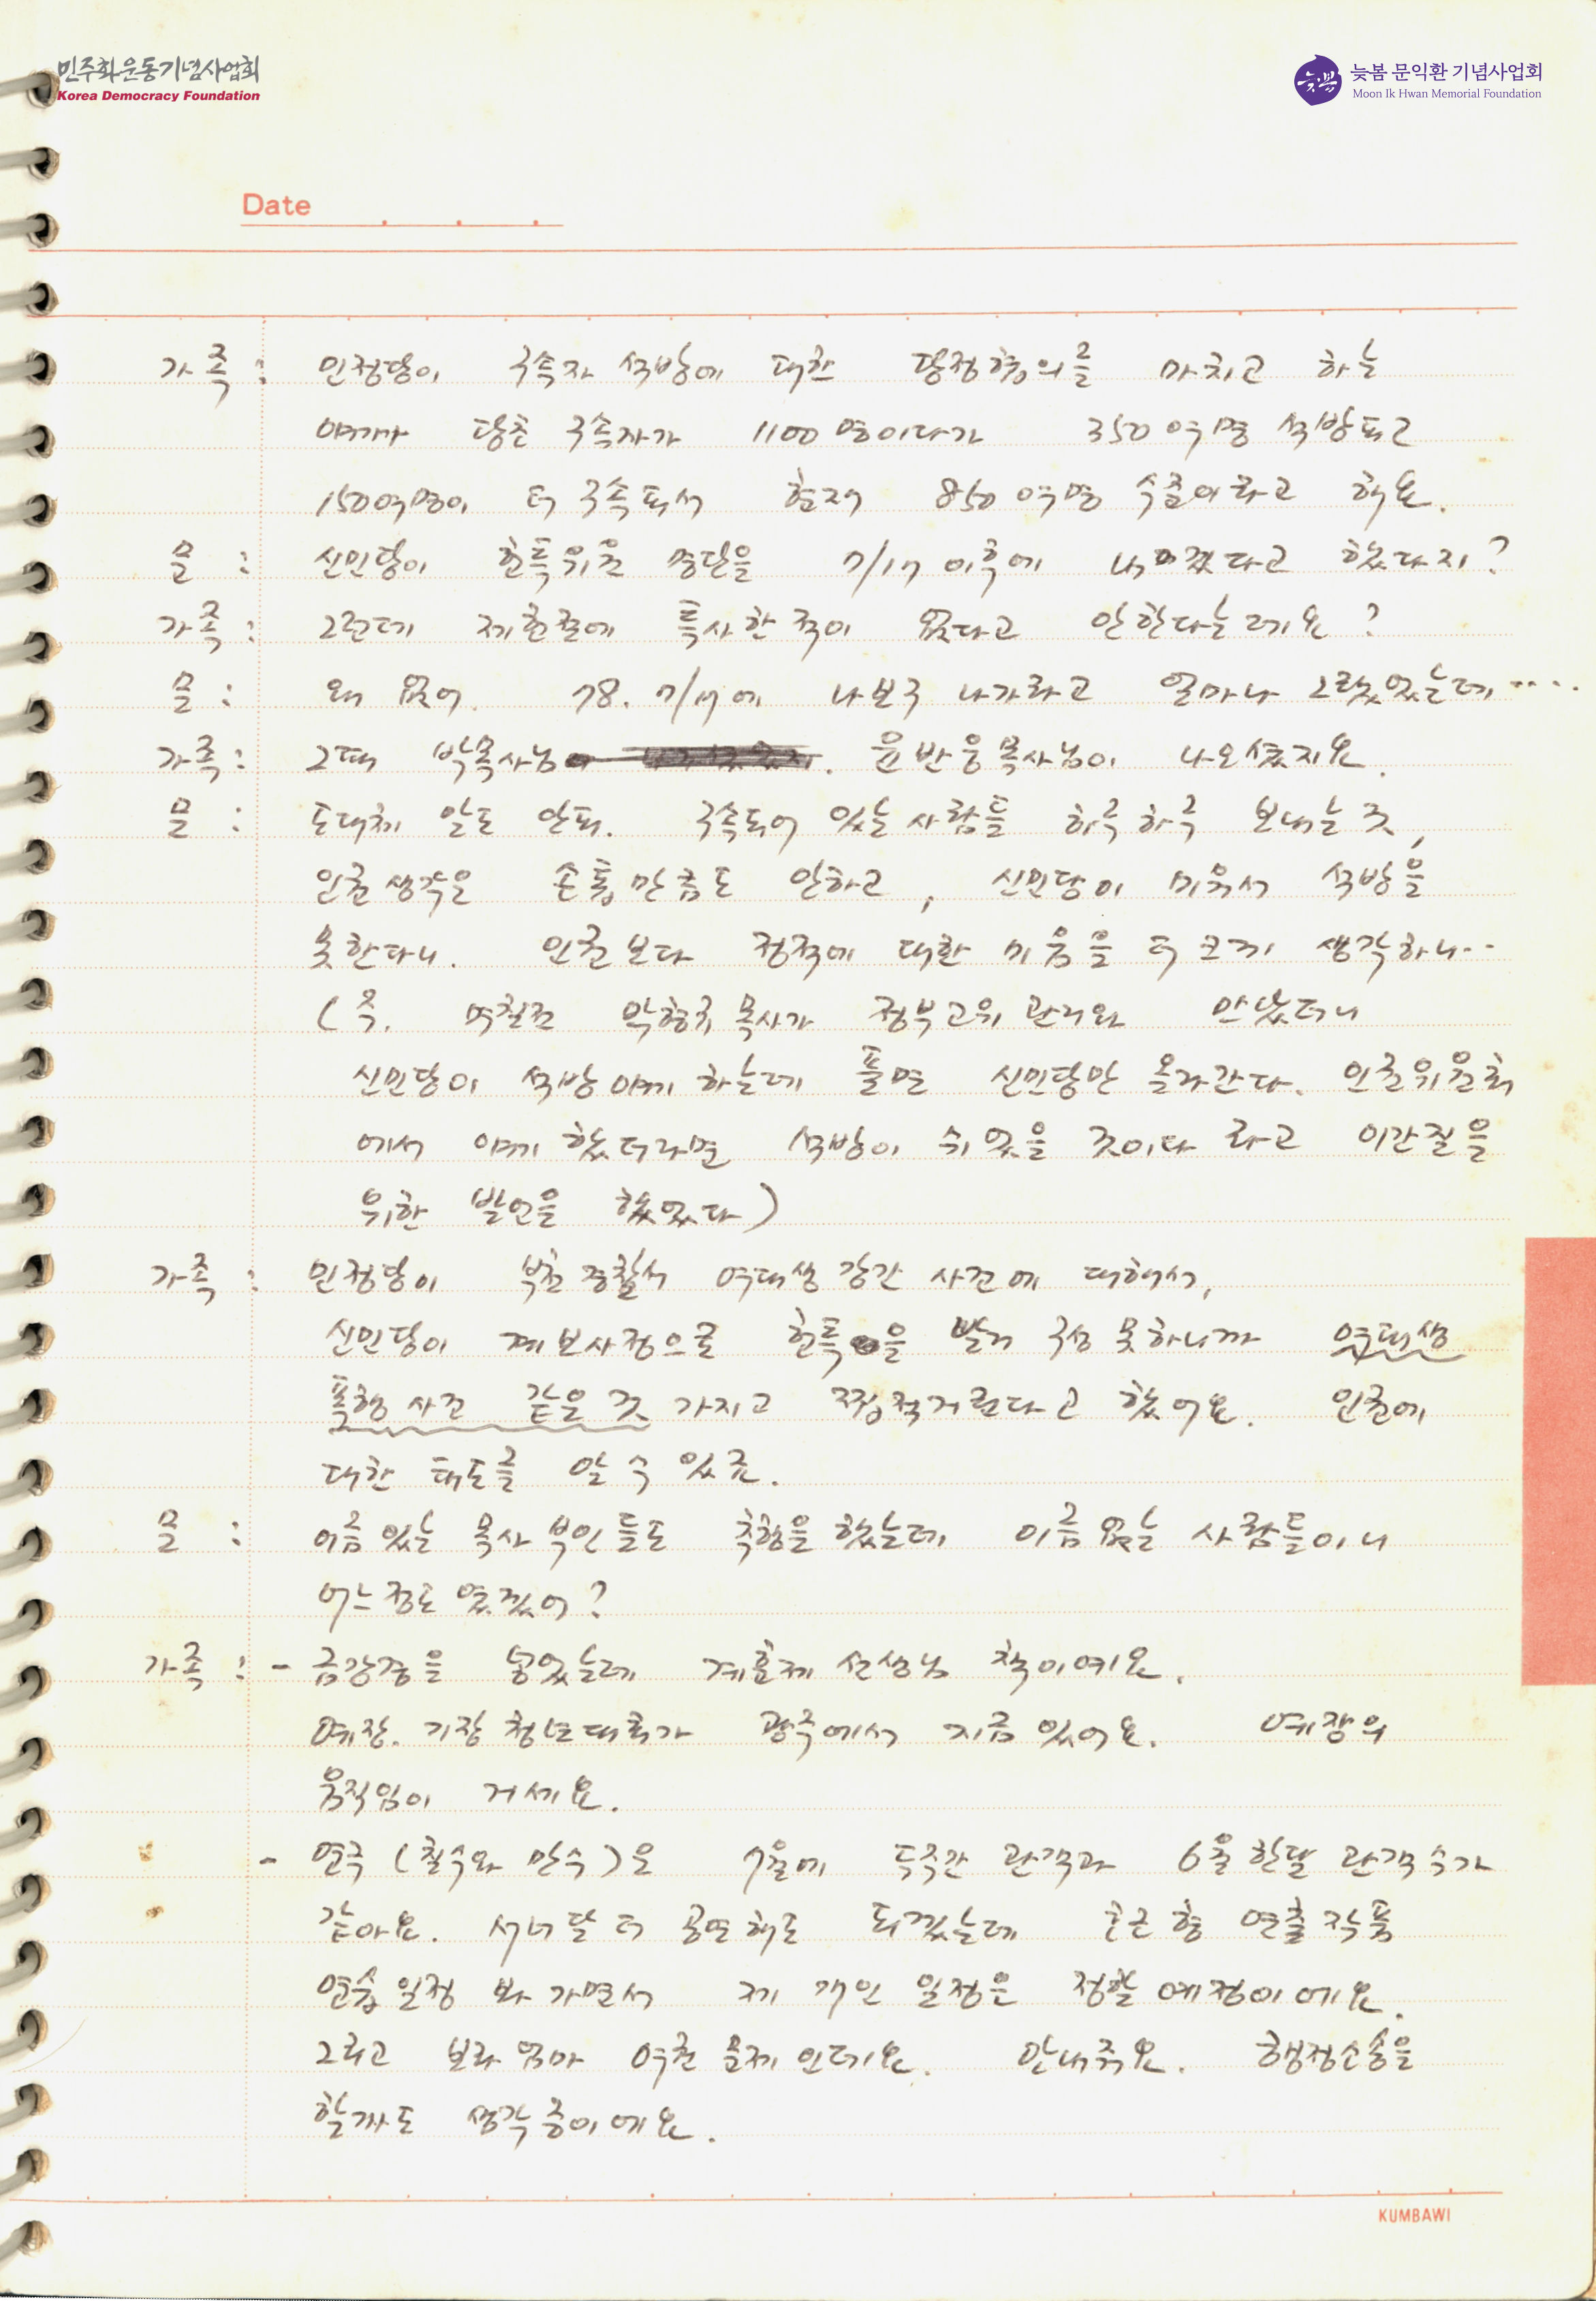 민주화운동기념사업회
Korea Democracy Foundation
늦봄 문익환 기념사업회
Moon Ik Hwan Memorial Foundation
Date
가족 : 민정당이 구속자 석방에 대한 당정협의를 마치고 하는
얘기가 당초 구속자가 1100명이다가 350여명 석방되고
150여명이 더 구속되서 현재 850여명 수준이라고 해요.
문 : 신민당이 헌특위원 명단을 7/17 이후에 내겠다고 했다지?
가족 : 그런데 제헌절에 특사한 적이 없다고 안한다는데요?
문 : 왜 없어. 78. 7/17에 나보구 나가라고 얼마나 그랬었는데….
가족 : 그때 박목사님 . 윤반웅목사님이 나오셨지요.
문 : 도대체 말도 안돼. 구속되어 있는 사람들 하루하루 보내는 것,
인권생각은 손톱만큼도 안하고, 신민당이 미워서 석방을
못한다니. 인권보다 정적에 대한 미움을 더 크게 생각하니…
( 며칠전 박형규 목사가 정부고위관리와 만났더니
신민당이 석방얘기 하는데 풀면 신민당만 올라간다. 인권위원회
에서 얘기했더라면 석방이 쉬웠을 것이다 라고 이간질을
위한 발언을 했었다)
가족 : 민정당이 부천경찰서 여대생 강간 사건에 대해서,
신민당이 계보사정으로 헌특을 빨리 구성 못하니까 여대생
폭행 사건 같은 것 가지고 트집적거린다고 했어요. 인권에
대한 태도를 알 수 있죠.
문 : 이름있는 목사 부인들도 추행을 했는데 이름없는 사람들이니
어느정도였겠어?
가족 : - 금강경을 넣었는데 선생님 책이예요.
예장. 기장 청년대회가 광주에서 지금 있어요. 예장의
움직임이 거세요.
- 연극 (칠수와 만수)은 7월에 두주간 관객과 6월 한달 관객수가
같아요. 서너달 더 공연해도 되겠는데 호근형 연출작품
연습일정 봐 가면서 제 개인 일정은 정할 예정이예요.
그리고 보라 엄마 여권 문제인데요. 안내줘요. 행정소송을
할까도 생각중이에요.
KUMBAWI